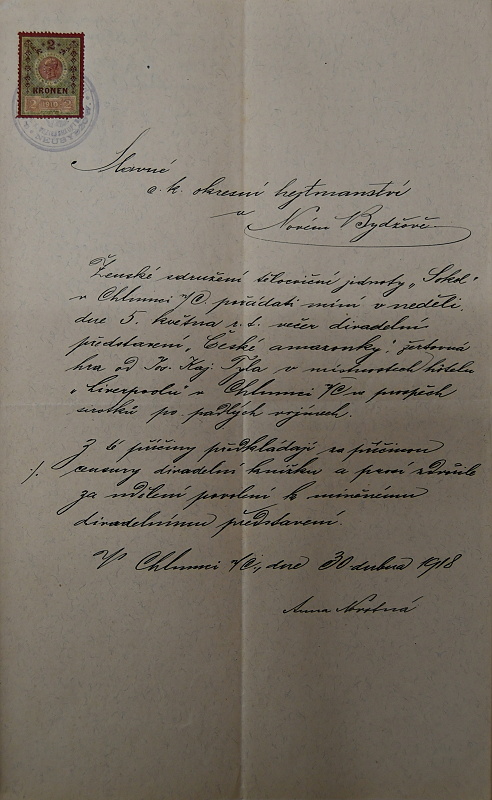 2
KRONEN
Slavné
c. k. okresní hejtmanství
v
Novém Bydžově.
Ženské sdružení tělocvičné jednoty „Sokol“
v Chlumci n/C. pořádati míní v neděli
dne 5. května r. t. večer divadelní
představení „České amazonky“, žertovná
hra od Jos. Kaj. Tyla v místnostech hôtelu
„Liverpoolu“ v Chlumci n/C ve prospěch
sirotků po padlých vojínech.
Z té příčiny předkládají za příčinou
./. censury divadelní knížku a prosí zdvořile
za udělení povolení k míněnému
divadelnímu představení.
V Chlumci n/C., dne 30 dubna 1918
Anna Novotná